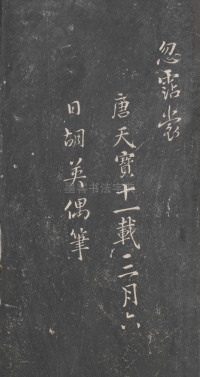 忽霑裳
唐天寶十一載三月六
日胡英偶筆